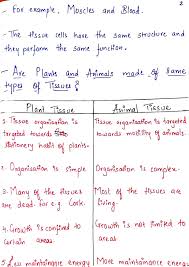 2
- For example, Muscles and Blood.
- The tissue cells have the same structure and
they perform the same function.
- Are Plants and Animals made of same
types of Tissues?
Plant Tissue Animal Tissue
1. Tissue organisation is Tissue organisation is targeted
targeted towards towards motility of animals.
stationary habit of plants.
2. Organisation is simple Organisation is complex.
3. Many of the tissues Most of the tissues are
are dead. For e.g. Cork. living.
4. Growth is confined to Growth is not limited to
certain areas areas.
5. Less maintenance More maintenance energy